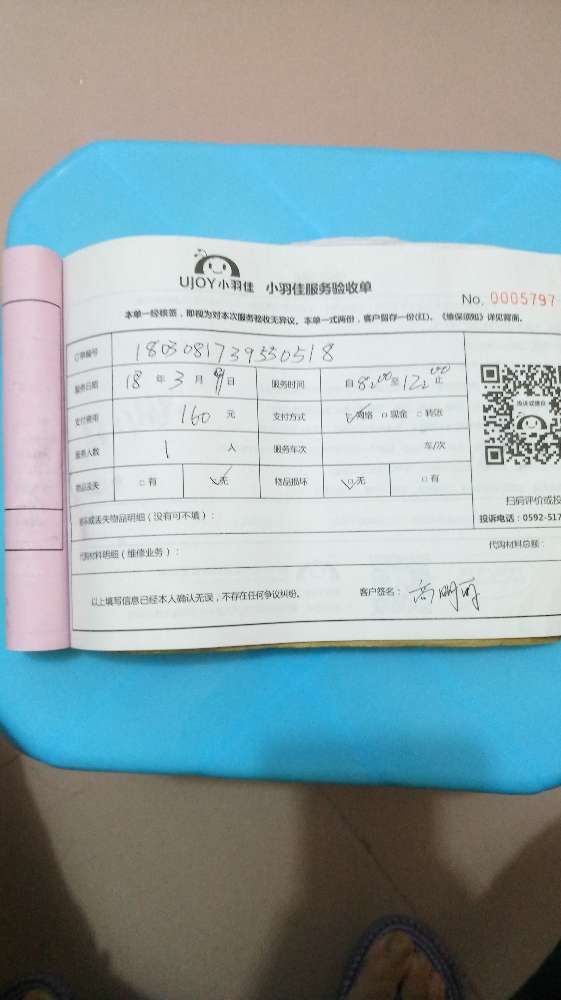 UJOY小羽佳 小羽佳服务验收单
No. 0005797
本单一经核签，即视为对本次服务验收无异议。本单一式两份，客户留存一份(红)。《维保须知》详见背面。
订单编号 180308173953 0518
服务日期 18 年 3 月 9 日 服务时间 自 8:00 至 12:00 止
支付费用 160 元 支付方式 ☑网络 □现金 □转账
服务人数 1 人 服务车次 车/次
物品丢失 □有 ☑无 物品损坏 ☑无 □有
投诉或建议
扫码评价或投
投诉电话：0592-517
损坏或丢失物品明细（没有可不填）：
代购材料明细（维修业务）： 代购材料总额：
以上填写信息已经本人确认无误，不存在任何争议纠纷。 客户签名：高明丽